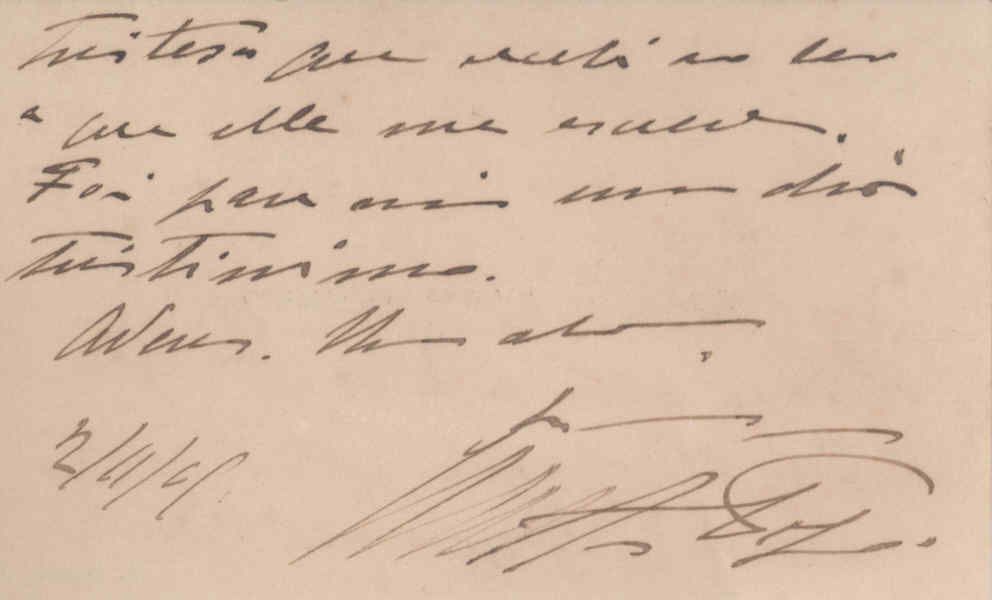 tristesa que senti ao ler
o que elle me escreve.
Foi para mim um dia
tristissimo.
Adeus. Um abraço
2/11/09.